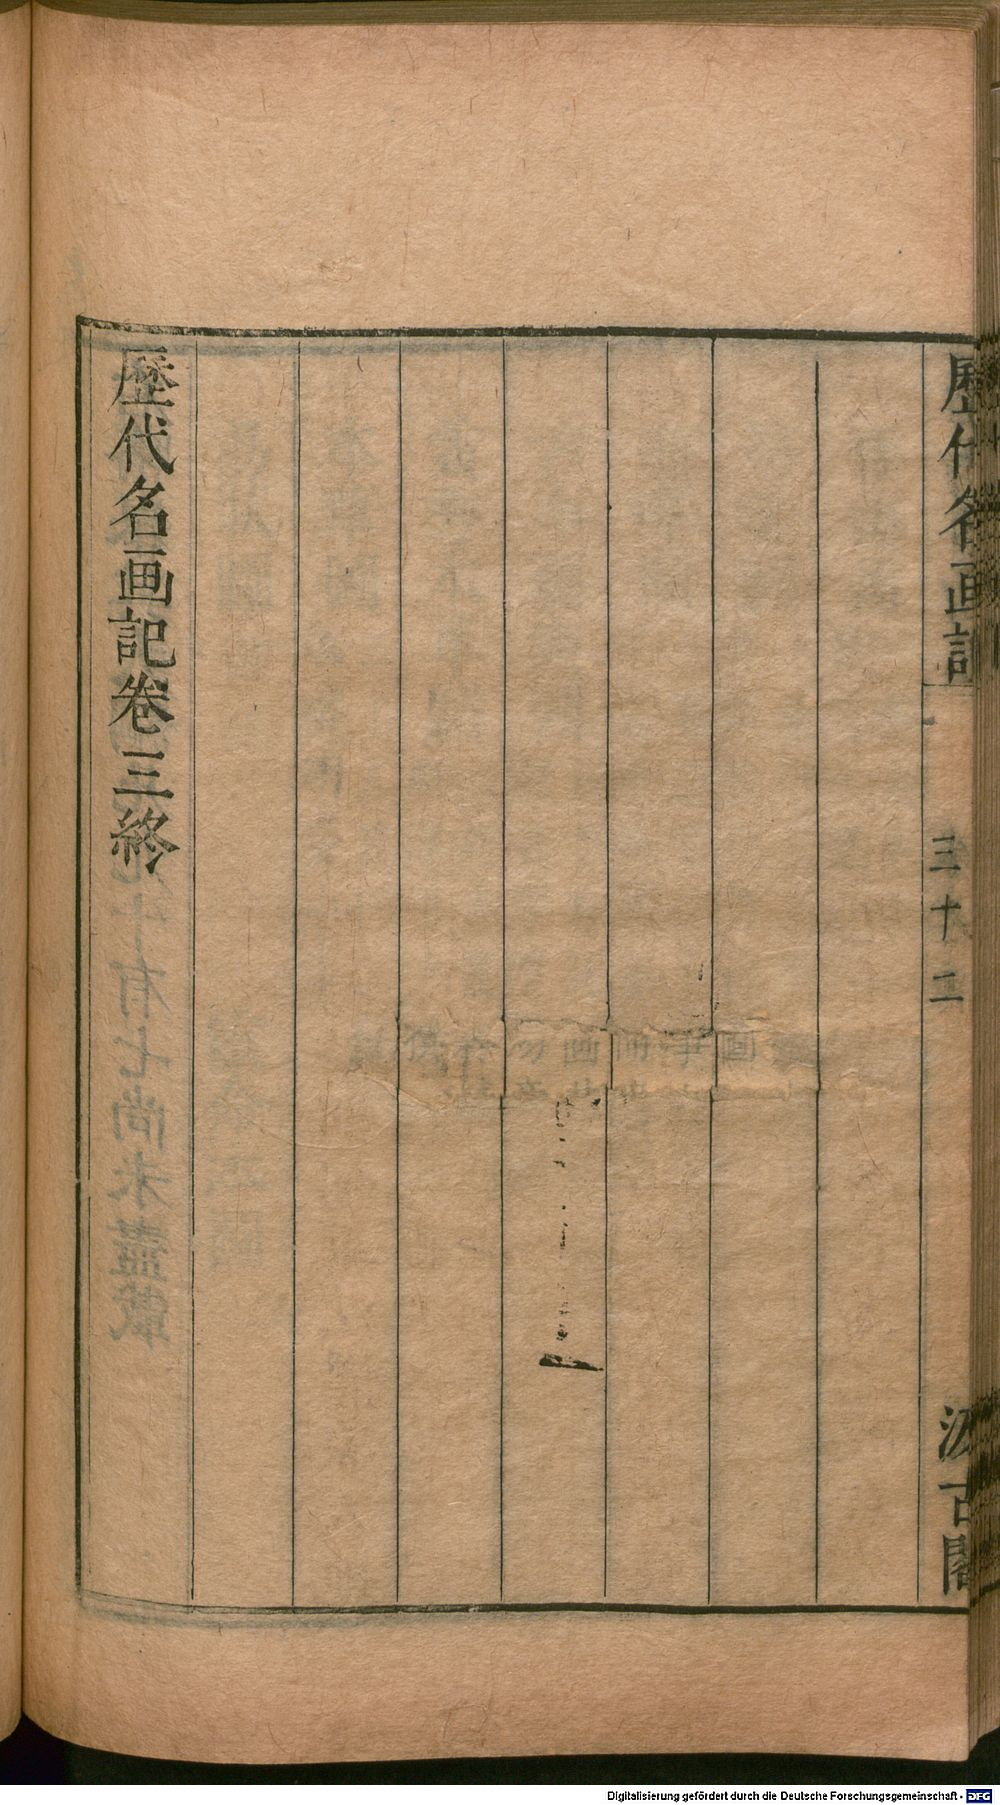 歷代名画記
三十二
汲古閣
歷代名画記卷三終
Digitalisierung gefördert durch die Deutsche Forschungsgemeinschaft - DFG